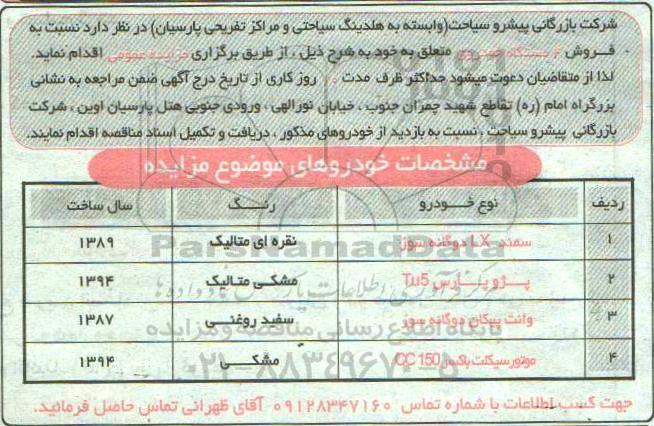 شرکت بازرگانی پیشرو سیاحت(وابسته به هلدینگ سیاحتی و مراکز تفریحی پارسیان) در نظر دارد نسبت به
فـروش ۴ دستگاه خودرو متعلق به خود به شرح ذیل ، از طریق برگزاری مزایده عمومی اقدام نماید.
لذا از متقاضیان دعوت میشود حداکثر ظرف مدت روز کاری از تاریخ درج آگهی ضمن مراجعه به نشانی
بزرگراه امام (ره) تقاطع شهید چمران جنوب ، خیابان نورالهی ، ورودی جنوبی هتل پارسیان اوین ، شرکت
بازرگانی پیشرو سیاحت ، نسبت به بازدید از خودروهای مذکور ، دریافت و تکمیل اسناد مناقصه اقدام نمایند.
مشخصات خودروهای موضوع مزایده
ردیف نوع خـودرو رنـگ سال ساخت
۱ سمند LX دوگانه سوز نقره ای متالیک ۱۳۸۹
۲ پـژو پـارس Tu5 مشکی متالیک ۱۳۹۴
۳ وانت پیکان دوگانه سوز سفید روغنی ۱۳۸۷
۴ موتور سیکلت باکسر CC 150 مشکی ۱۳۹۴
ParsNamadData
پایگاه اطلاع رسانی مناقصه و مزایده
۰۲۱-۸۸۳۴۹۶۷۰
جهت کسب اطلاعات با شماره تماس ۰۹۱۲۸۳۴۷۱۶۰ آقای طهرانی تماس حاصل فرمائید.